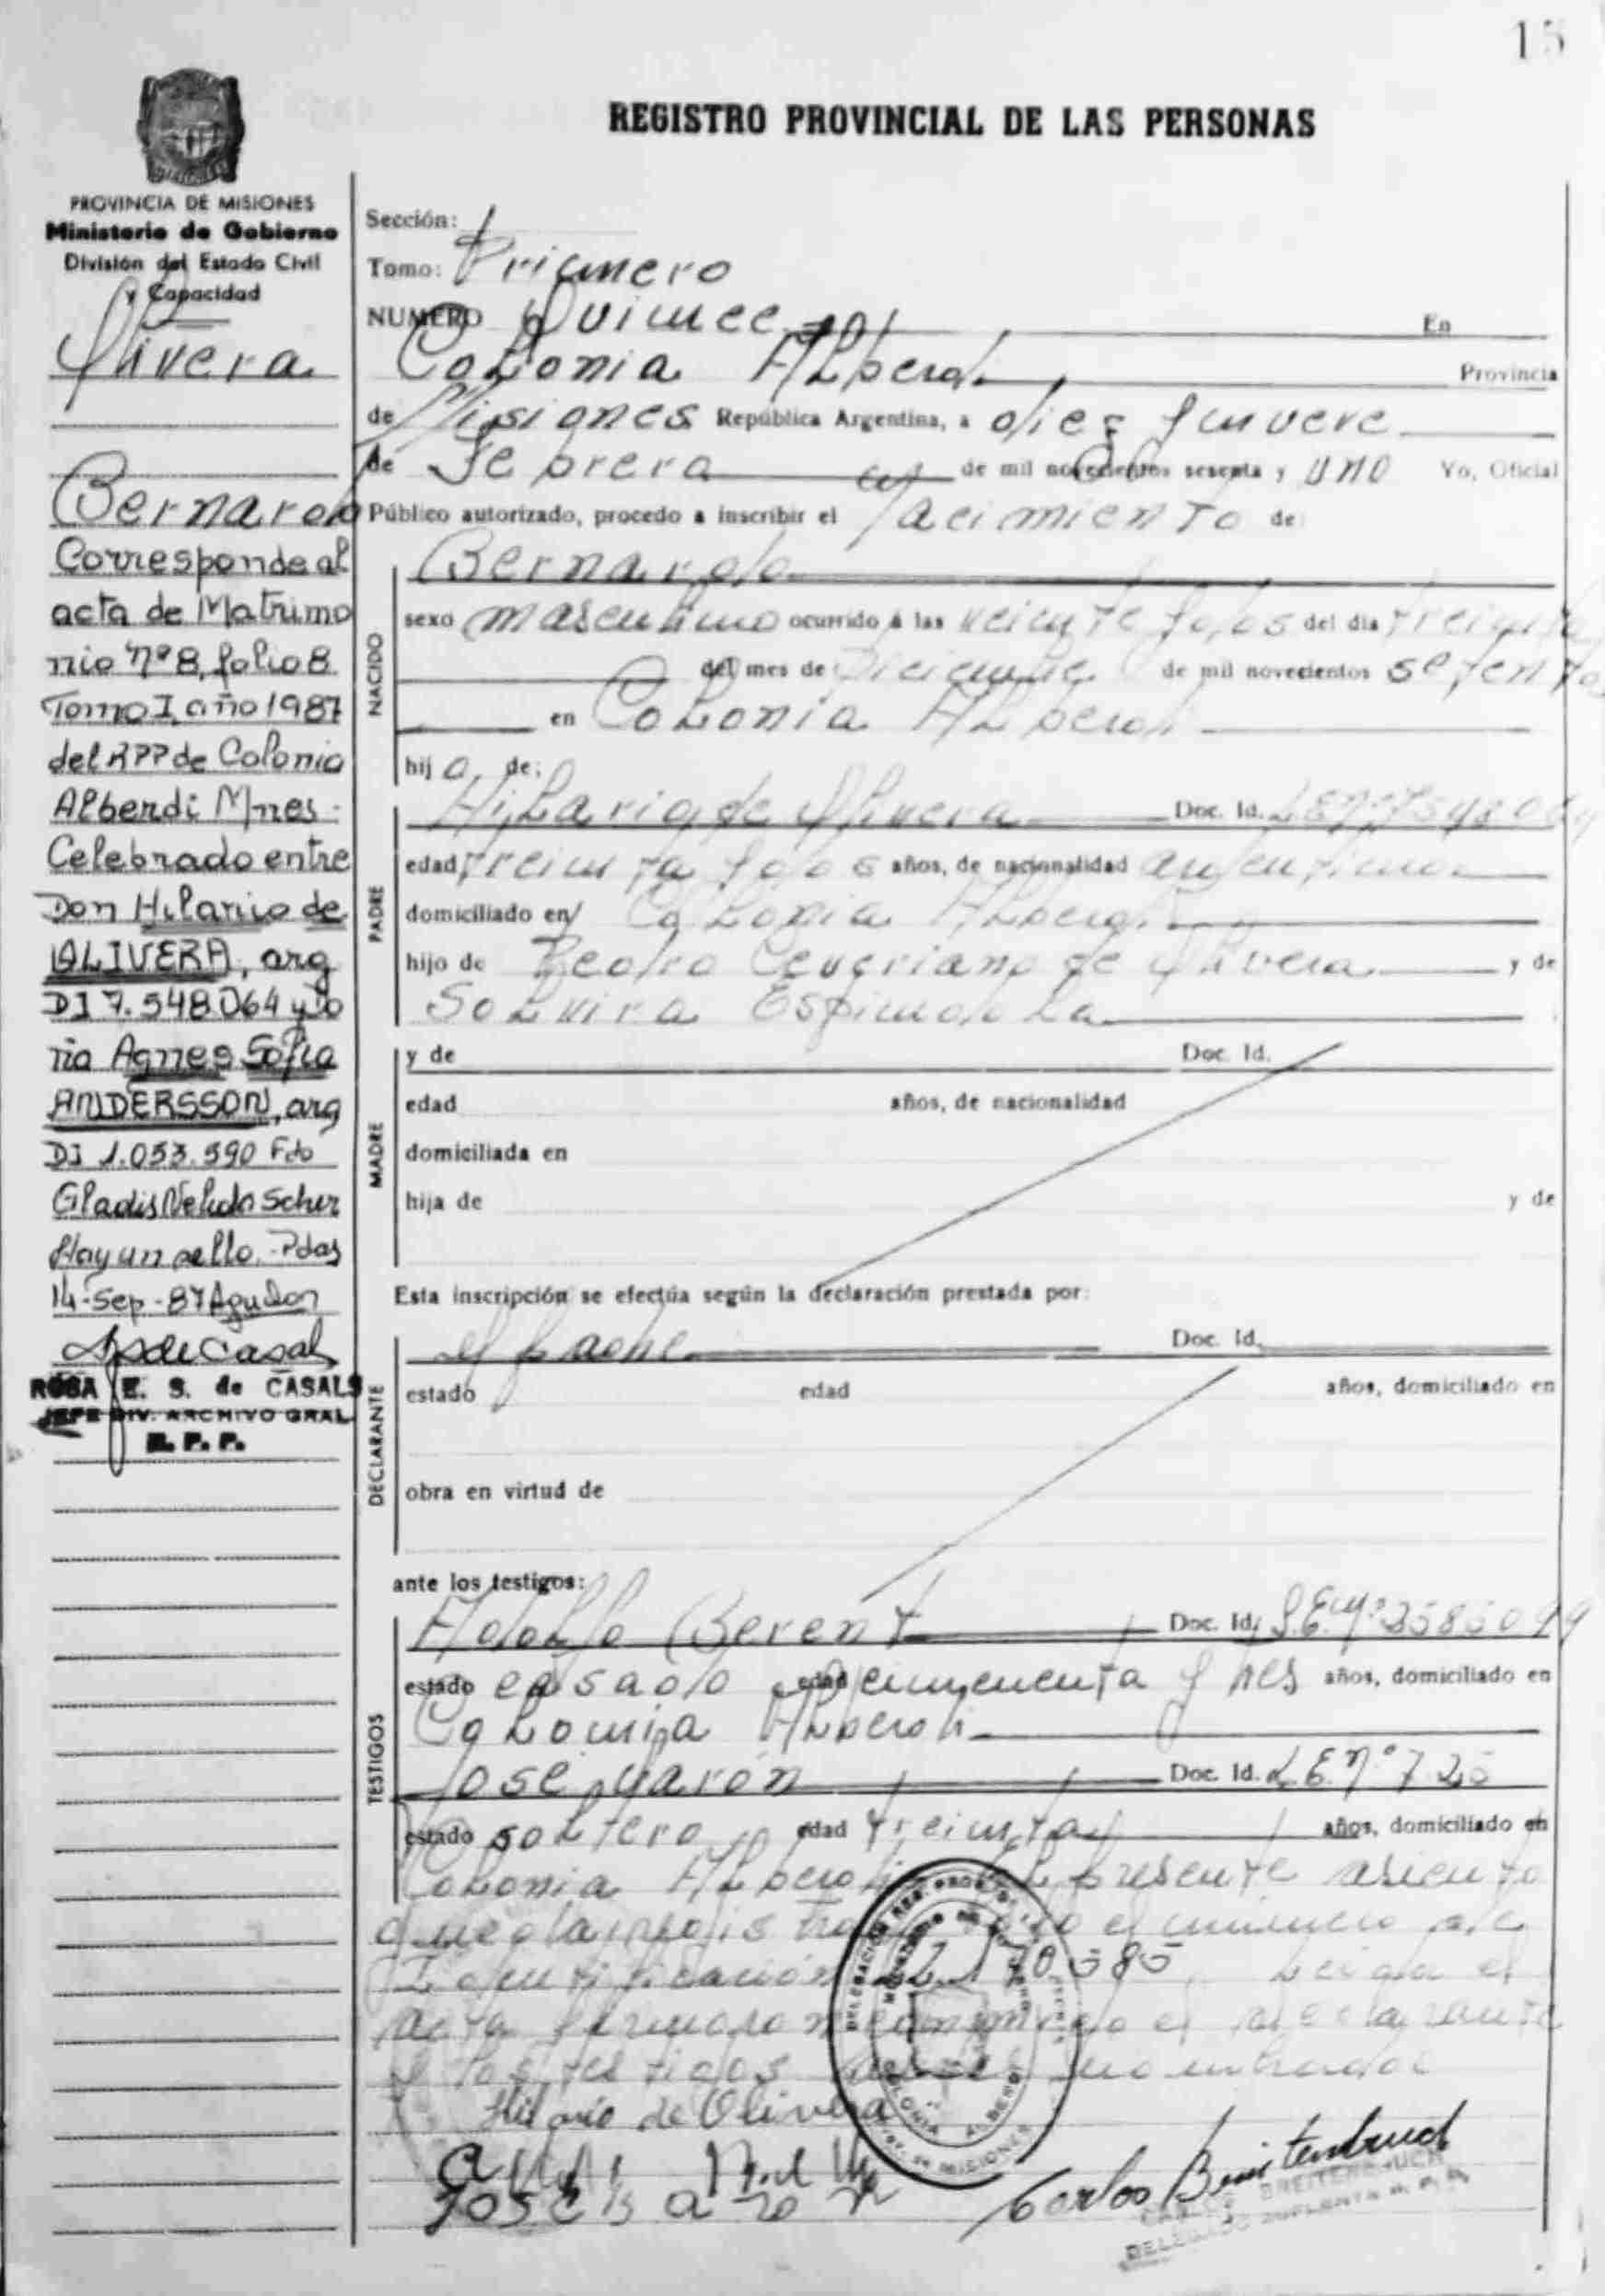 15
REGISTRO PROVINCIAL DE LAS PERSONAS
PROVINCIA DE MISIONES
Ministerio de Gobierno
División del Estado Civil
y Capacidad
Olivera
Bernardo
Corresponde al
acta de Matrimo
nio nº 8, folio 8
Tomo I, año 1987
del RPP de Colonia
Alberdi Mnes -
Celebrado entre
Don Hilario de
OLIVERA, arg
DI 7.548.064 y Do
ña Agnes Sofia
ANDERSSON, arg
DI 1.053.590 Fdo
Gladis Nelida Scher
Hay un sello. - Pdas
14 - Sep - 87
de Casals
ROSA E. S. de CASALS
JEFE DIV. ARCHIVO GRAL
R. P. P.
Sección:
Tomo: Primero
NUMERO Quince En
Colonia Alberdi Provincia
de Misiones República Argentina, a diez y nueve
de Febrero de mil novecientos sesenta y uno Yo, Oficial
Público autorizado, procedo a inscribir el Nacimiento de:
NACIDO
Bernardo
sexo masculino ocurrido a las veinte y dos del día treinta
del mes de Diciembre de mil novecientos setenta
en Colonia Alberdi
hijo de:
PADRE
Hilario de Olivera Doc. Id. LE nº 7548064
edad treinta y dos años, de nacionalidad argentino
domiciliado en Colonia Alberdi
hijo de Pedro Ceveriano de Olivera y de
Solvira Espindola
MADRE
y de Doc. Id.
edad años, de nacionalidad
domiciliada en
hija de y de
Esta inscripción se efectúa según la declaración prestada por:
DECLARANTE
el padre Doc. Id.
estado edad años, domiciliado en
obra en virtud de
ante los testigos:
TESTIGOS
Adolfo Berent Doc. Id. L.E. nº
estado casado edad cincuenta y tres años, domiciliado en
Colonia Alberdi
José Doc. Id. L.E. nº
estado soltero edad treinta años, domiciliado en
Colonia Alberdi El presente asiento
queda registrado bajo el número de
Identificación Leída el
acta firmaron conmigo el declarante
y los testigos
Hilario de Olivera
JOSE
Carlos Breitenbruch
DELEGACION REG. PROV. DE
COLONIA ALBERDI
PROV. DE MISIONES